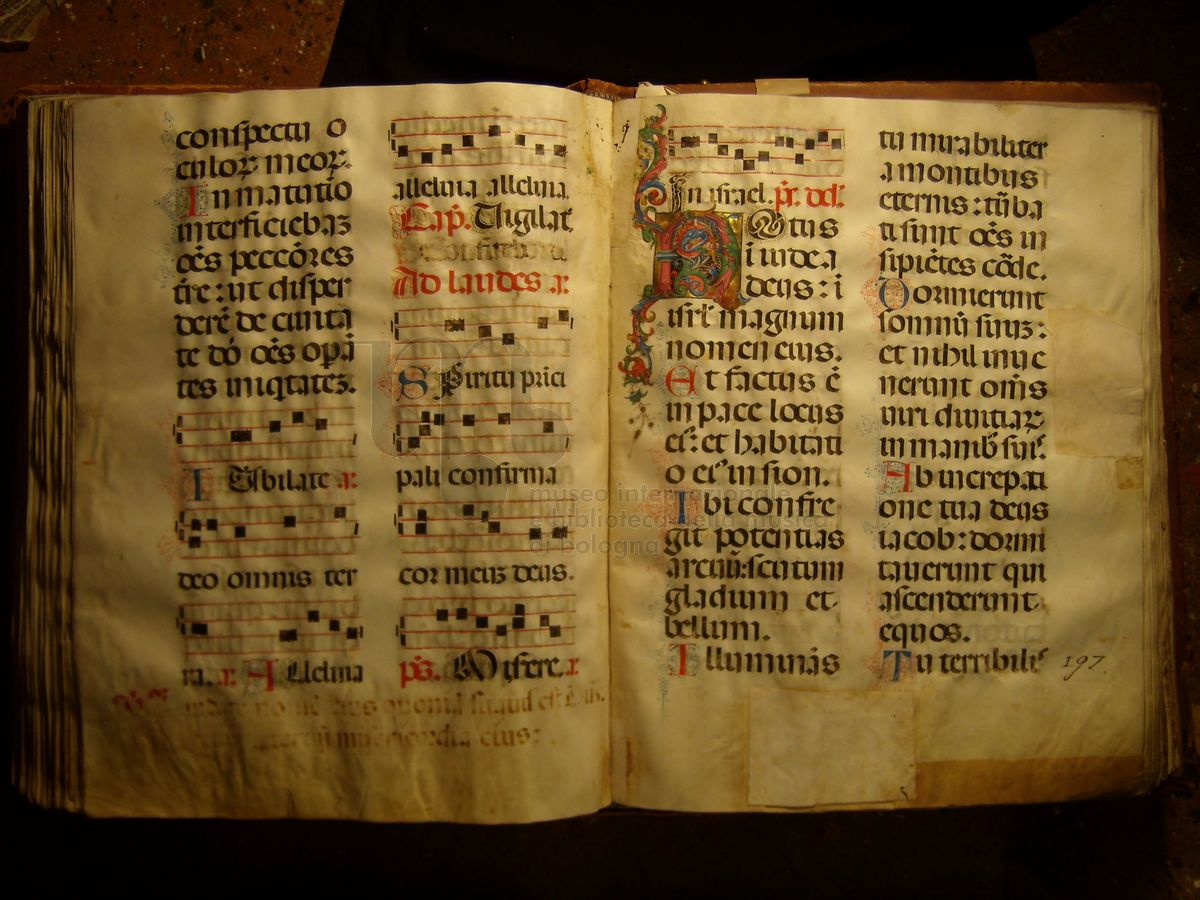 conspectu o
culoꝝ meoꝝ.
In matutio
interficiebaꝫ
oēs peccōres
tr̄e: ut disper
derē de ciuita
te dn̄i oēs opān
tes iniqtateꝫ.
IUbilate a:
deo omnis ter
ra. a: Alleluia
alleluia alleluia.
Cap̄. Vigilate
Ad laudes a:
Spiritu princi
pali confirma
cor meuꝫ deus.
ps̄. Misere. a:
In israel. ps̄. dd̄.
NOtus
in iudea
deus: i
isrl̄ magnum
nomen eius.
Et factus ē
in pace locus
eiꝰ: et habitati
o eiꝰ in sion.
Ibi confre
git potentias
arcuū: scutum
gladium et
bellum.
Illuminās
tu mirabiliter
a montibus
eternis: tūba
ti sunt oēs in
sipiētes cōde.
Dormierunt
somnū suuꝫ:
et nihil inue
nerunt om̄s
uiri diuitiaꝝ
in manibꝰ suiꝭ.
Ab increpati
one tua deus
iacob: dormi
tauerunt qui
ascenderunt
equos.
Tu terribiliꝭ
197.
museo internazionale
e biblioteca della musica
di bologna